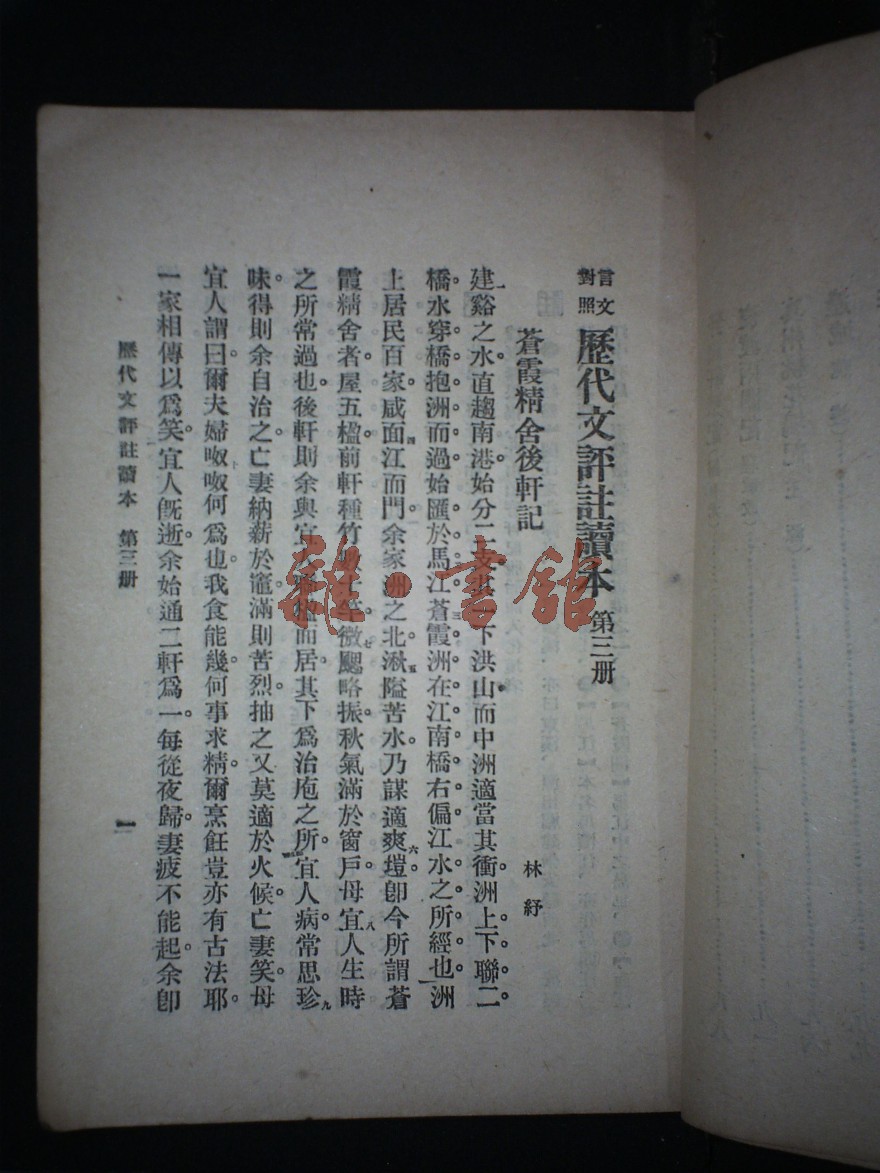 言文對照 歷代文評註讀本 第三册
蒼霞精舍後軒記 林紓
建谿之水直趨南港始分二支其一下洪山而中洲適當其衝洲上下聯二
橋水穿橋抱洲而過始匯於馬江蒼霞洲在江南橋右偏江水之所經也洲
上居民百家咸面江而門余家洲之北湫隘苦水乃謀適爽塏卽今所謂蒼
霞精舍者屋五楹前軒種竹數十竿微颸略振秋氣滿於窗戶母宜人生時
之所常過也後軒則余與宜人聯楹而居其下爲治庖之所宜人病常思珍
味得則余自治之亡妻納薪於竈滿則苦烈抽之又莫適於火候亡妻笑母
宜人謂曰爾夫婦呶呶何爲也我食能幾何事求精爾烹飪豈亦有古法耶
一家相傳以爲笑宜人旣逝余始通二軒爲一每從夜歸妻疲不能起余卽
歷代文評註讀本 第三册 一
雜·書館